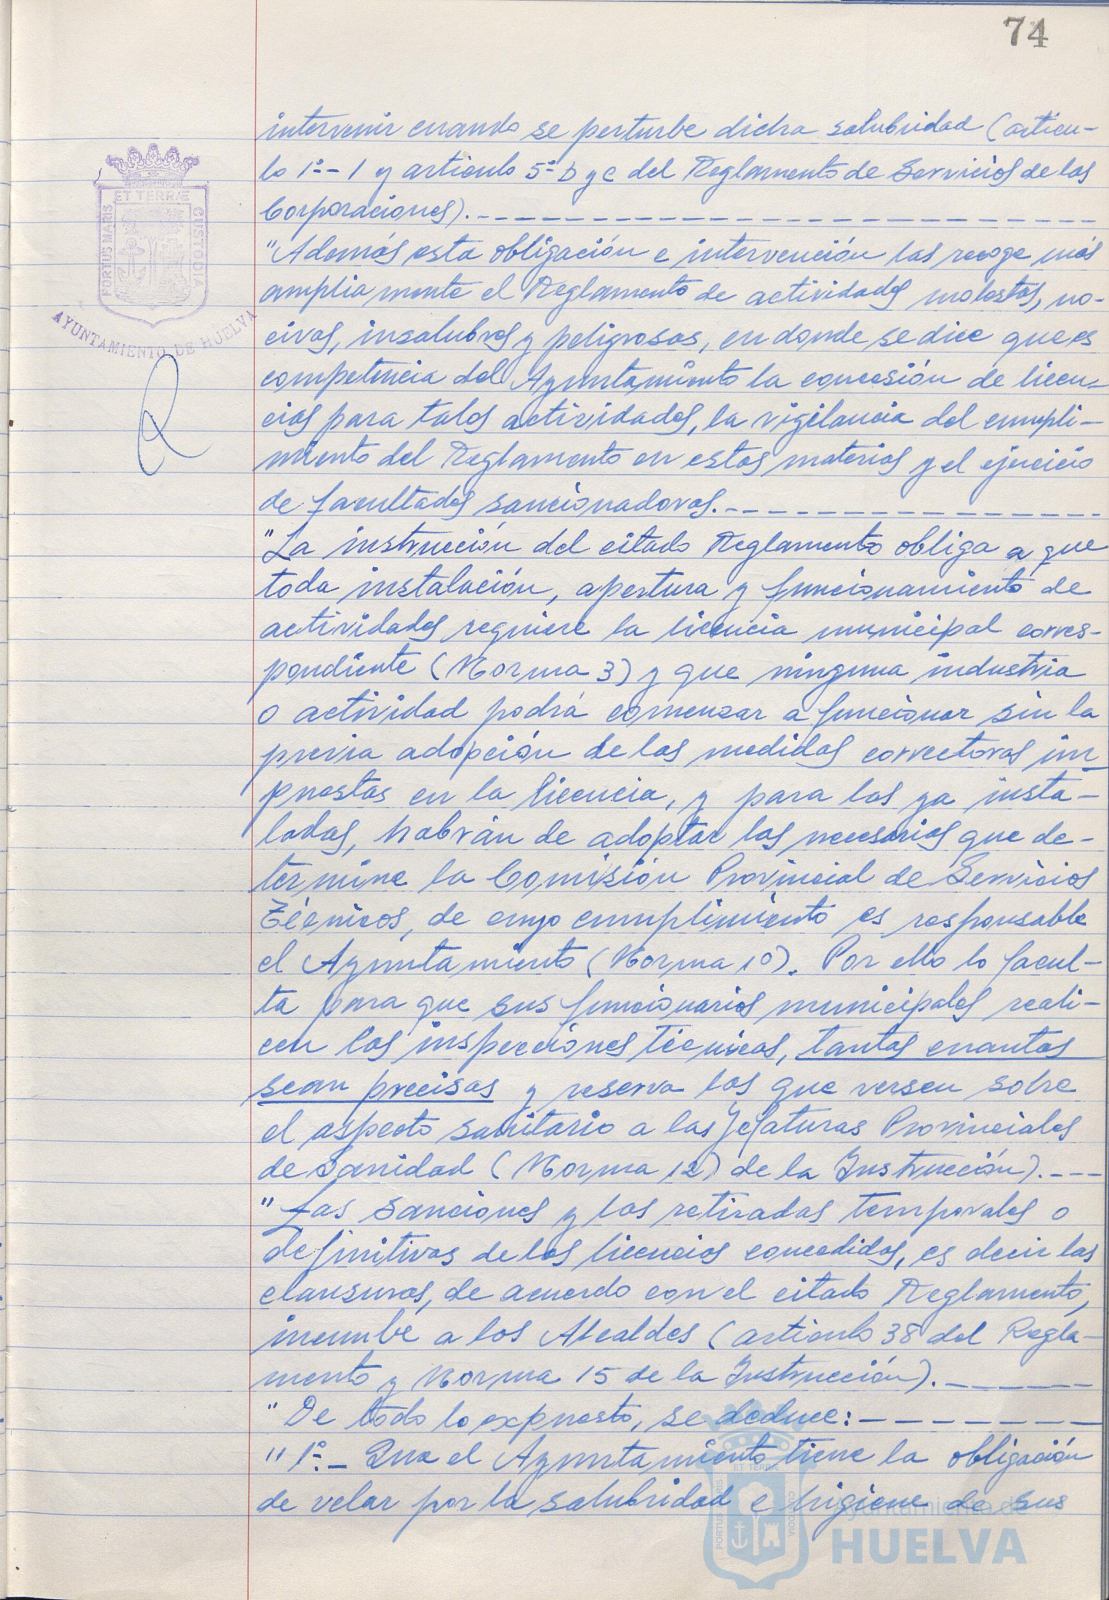 74
intervenir cuando se perturbe dicha salubridad (artícu-
lo 1º-1 y artículo 5º b y c del Reglamento de Servicios de las
Corporaciones).
"Además esta obligación e intervención las recoge más
ampliamente el Reglamento de actividades molestas, no-
civas, insalubres y peligrosas, en donde se dice que es
competencia del Ayuntamiento la concesión de licen-
cias para tales actividades, la vigilancia del cumpli-
miento del Reglamento en estas materias y el ejercicio
de facultades sancionadoras.
"La instrucción del citado Reglamento obliga a que
toda instalación, apertura y funcionamiento de
actividades requiere la licencia municipal corres-
pondiente (Norma 3) y que ninguna industria
o actividad podrá comenzar a funcionar sin la
previa adopción de las medidas correctoras im-
puestas en la licencia, y para las ya insta-
ladas, habrán de adoptar las necesarias que de-
termine la Comisión Provincial de Servicios
Técnicos, de cuyo cumplimiento es responsable
el Ayuntamiento (Norma 10). Por ello lo facul-
ta para que sus funcionarios municipales reali-
cen las inspecciones técnicas, tantas cuantas
sean precisas y reserva las que versen sobre
el aspecto sanitario a las Jefaturas Provinciales
de Sanidad (Norma 12) de la Instrucción).
"Las sanciones y las retiradas temporales o
definitivas de las licencias concedidas, es decir las
clausuras, de acuerdo con el citado Reglamento,
incumbe a los Alcaldes (artículo 38 del Regla-
mento y Norma 15 de la Instrucción).
"De todo lo expuesto, se deduce:
"1º.- Que el Ayuntamiento tiene la obligación
de velar por la salubridad e higiene de sus
PORTUS MARIS ET TERRÆ CUSTODIA
AYUNTAMIENTO DE HUELVA
PORTUS MARIS ET TERRÆ CUSTODIA
Ayuntamiento de
HUELVA